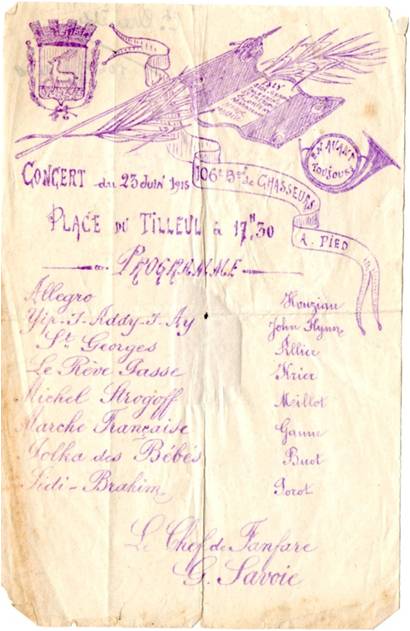 106e Bon de Chasseurs
à Pied
En Avant
Toujours
Concert du 23 Juin 1915
Place du Tilleul à 17H,30
Programme
Allegro Houziau
Yip-I-Addy-I-Ay John Flynn
St Georges Allier
Le Rêve Passe Krier
Michel Strogoff Millot
Marche Française Ganne
Polka des Bébés Buot
Sidi-Brahim Porot
Le Chef de Fanfare
G. Savoie